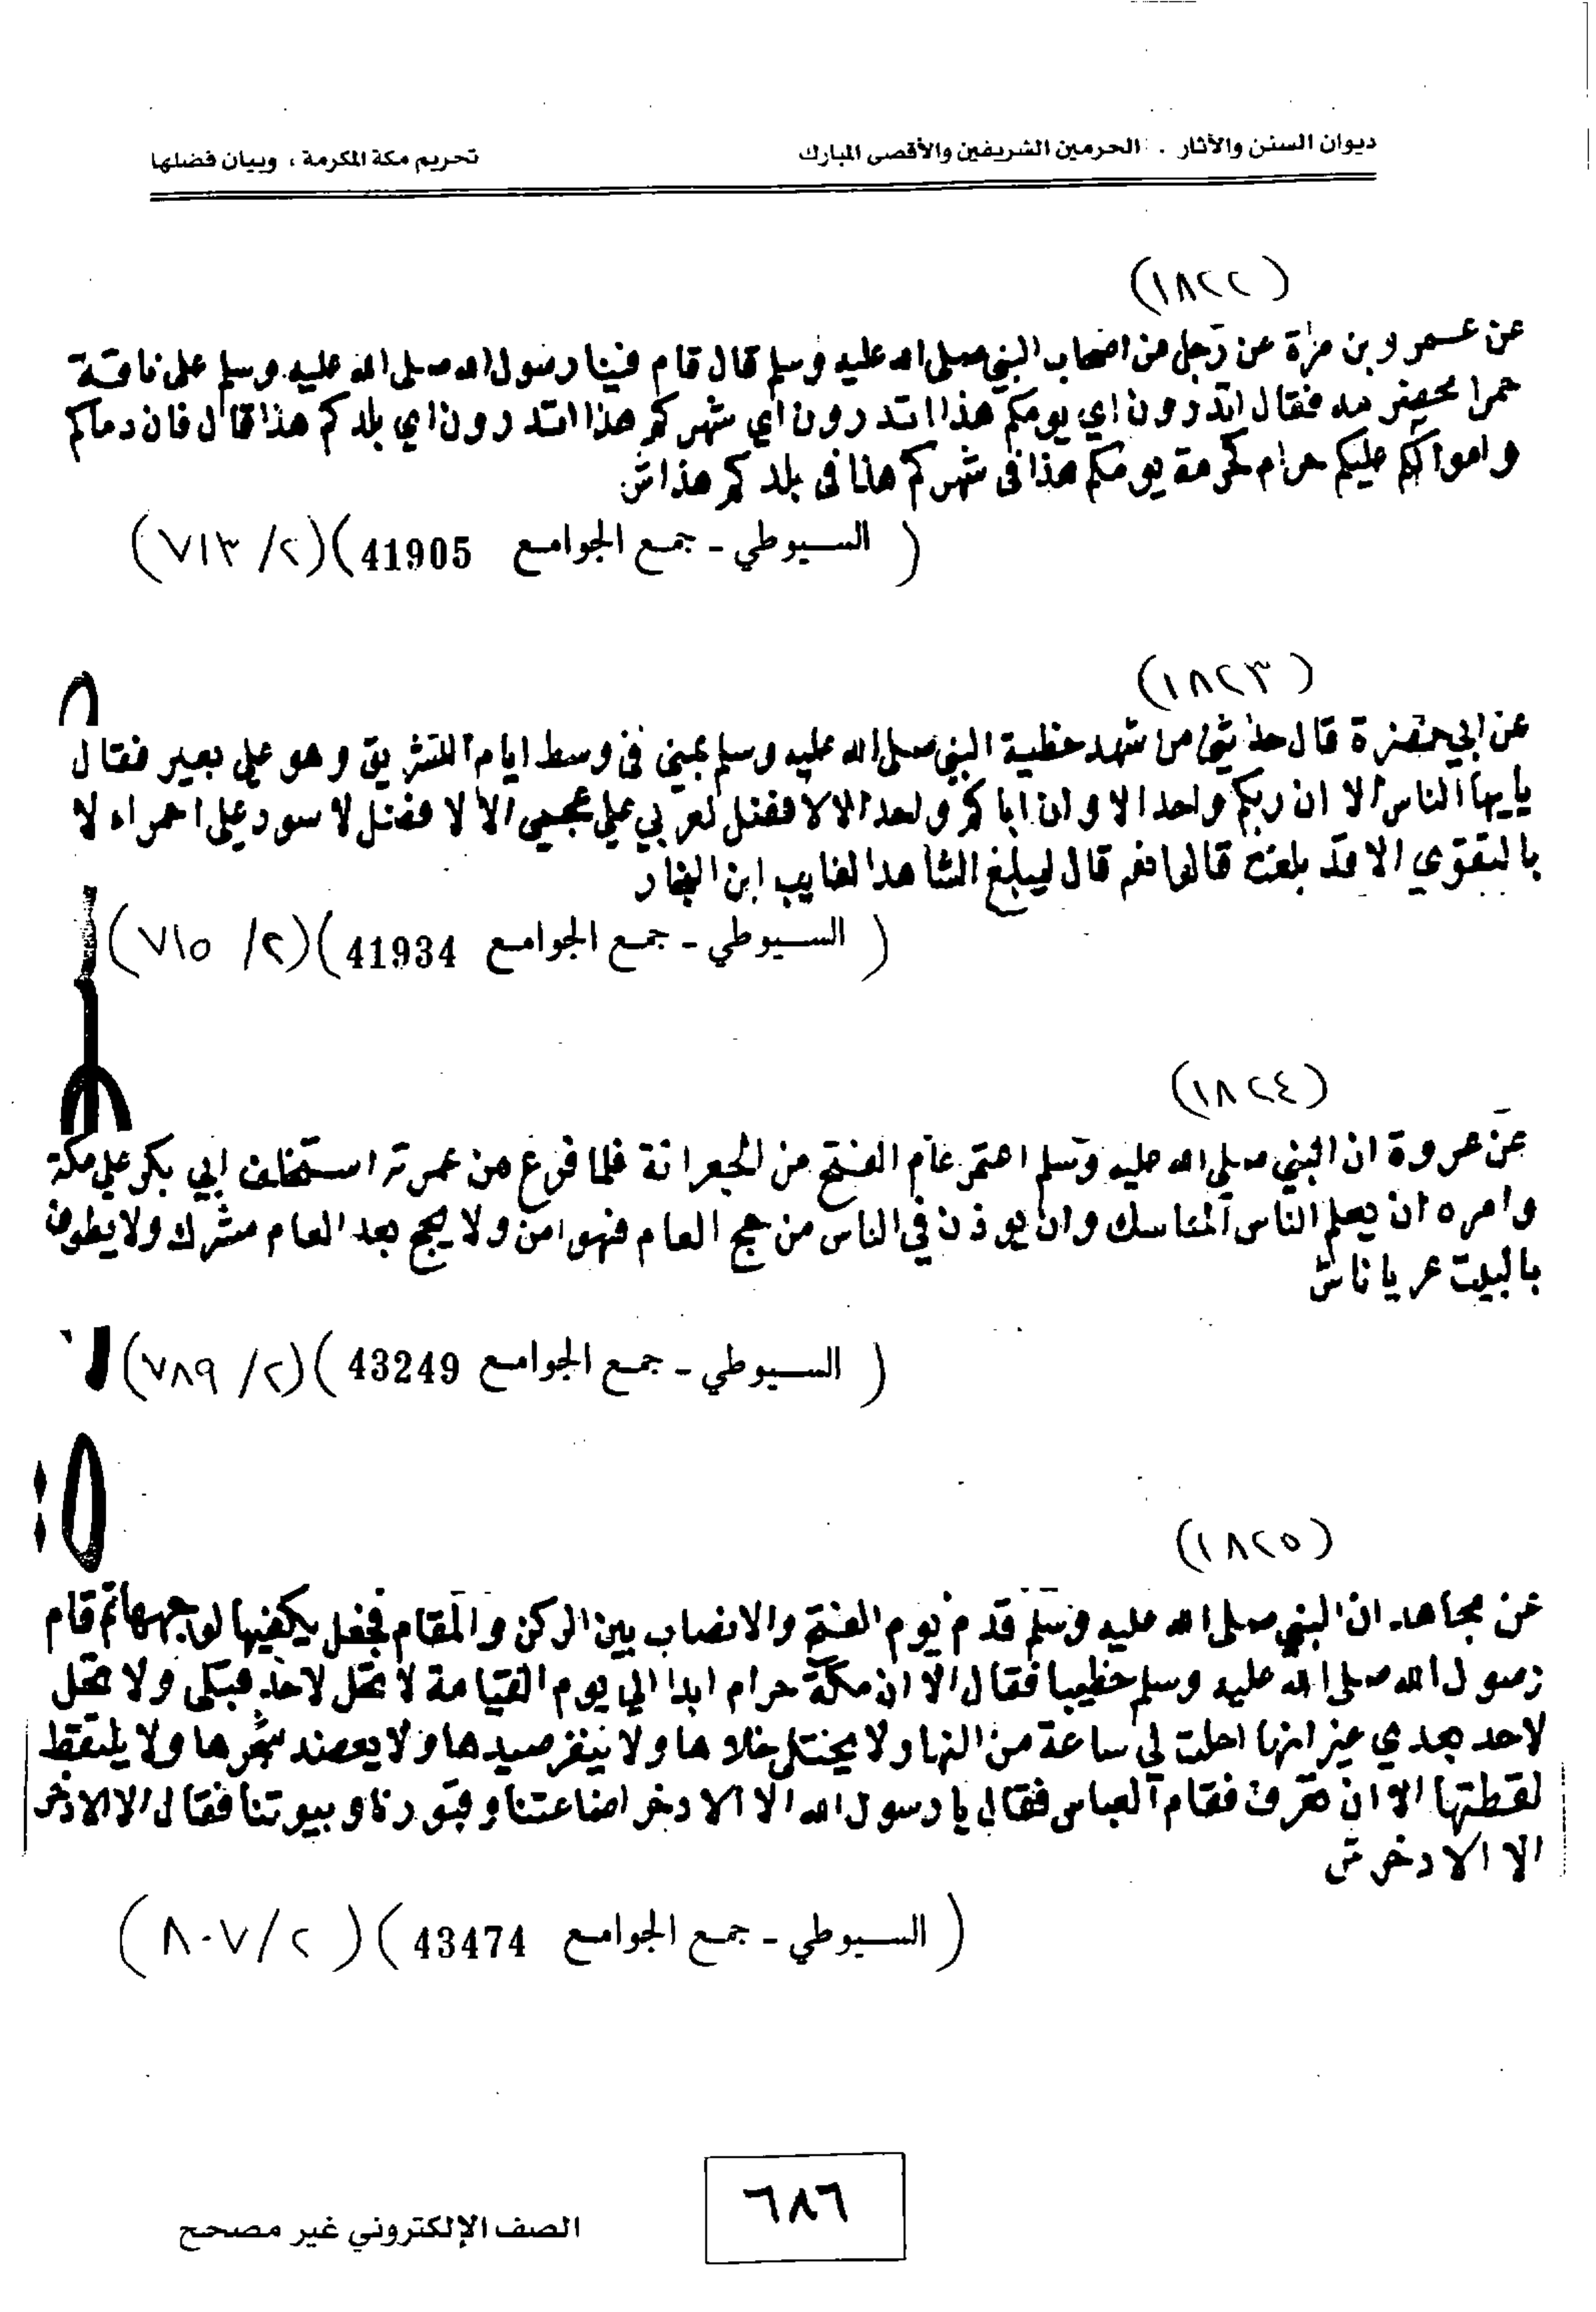 ديوان السنن والآثار . الحرمين الشريفين والأقصى المبارك
تحريم مكة المكرمة ، وبيان فضلها
(١٨٢٢)
عن عمرو بن مرة عن رجل من اصحاب النبي صلى الله عليه وسلم قال قام فينا رسول الله صلى الله عليه وسلم على ناقة
حمرا فقال اتدرون اي يومكم هذا اتدرون اي شهركم هذا اتدرون اي بلدكم هذا قال فان دماكم
واموالكم عليكم حرام كحرمة يومكم هذا فى شهركم هذا فى بلدكم هذا ش
( السيوطي - جمع الجوامع 41905 )(٢/ ٧١٣)
(١٨٢٣)
عن ابي قال حدثني من شهد خطبة النبي صلى الله عليه وسلم بمنى فى وسط ايام التشريق وهو على بعير فقال
يايها الناس الا ان ربكم واحد الا وان اباكم واحد الا لا فضل لعربي على عجمي الا لا فضل لاسود على احمر الا
بالتقوي الا قد بلغت قالوا نعم قال ليبلغ الشاهد الغايب ابن النجار
( السيوطي - جمع الجوامع 41934 )(٢/ ٧١٥)
(١٨٢٤)
عن عروة ان النبي صلى الله عليه وسلم اعتمر عام الفتح من الجعرانة فلما فرغ من عمرته استخلف ابي بكر على مكة
وامره ان يعلم الناس المناسك وان يوذن في الناس من حج العام فهو امن ولا يحج بعد العام مشرك ولا يطوف
بالبيت عريانا ش
( السيوطي - جمع الجوامع 43249 )(٢/ ٧٨٩)
(١٨٢٥)
عن مجاهد ان النبي صلى الله عليه وسلم قدم يوم الفتح والانصاب بين الركن والمقام فجعل يكفيها لوجهها ثم قام
رسول الله صلى الله عليه وسلم خطيبا فقال الا ان مكة حرام ابدا الي يوم القيامة لا تحل لاحد قبلى ولا تحل
لاحد بعدي غير انها احلت لي ساعة من النهار ولا يختلى خلاها ولا ينفر صيدها ولا يعضد شجرها ولا يلتقط
لقطتها الا ان تعرف فقام العباس فقال يا رسول الله الا الادخر لصناعتنا وقبورنا وبيوتنا فقال الا الادخر
الا الادخر ش
( السيوطي - جمع الجوامع 43474 )(٢/ ٨٠٧)
٦٨٦
الصف الإلكتروني غير مصحح